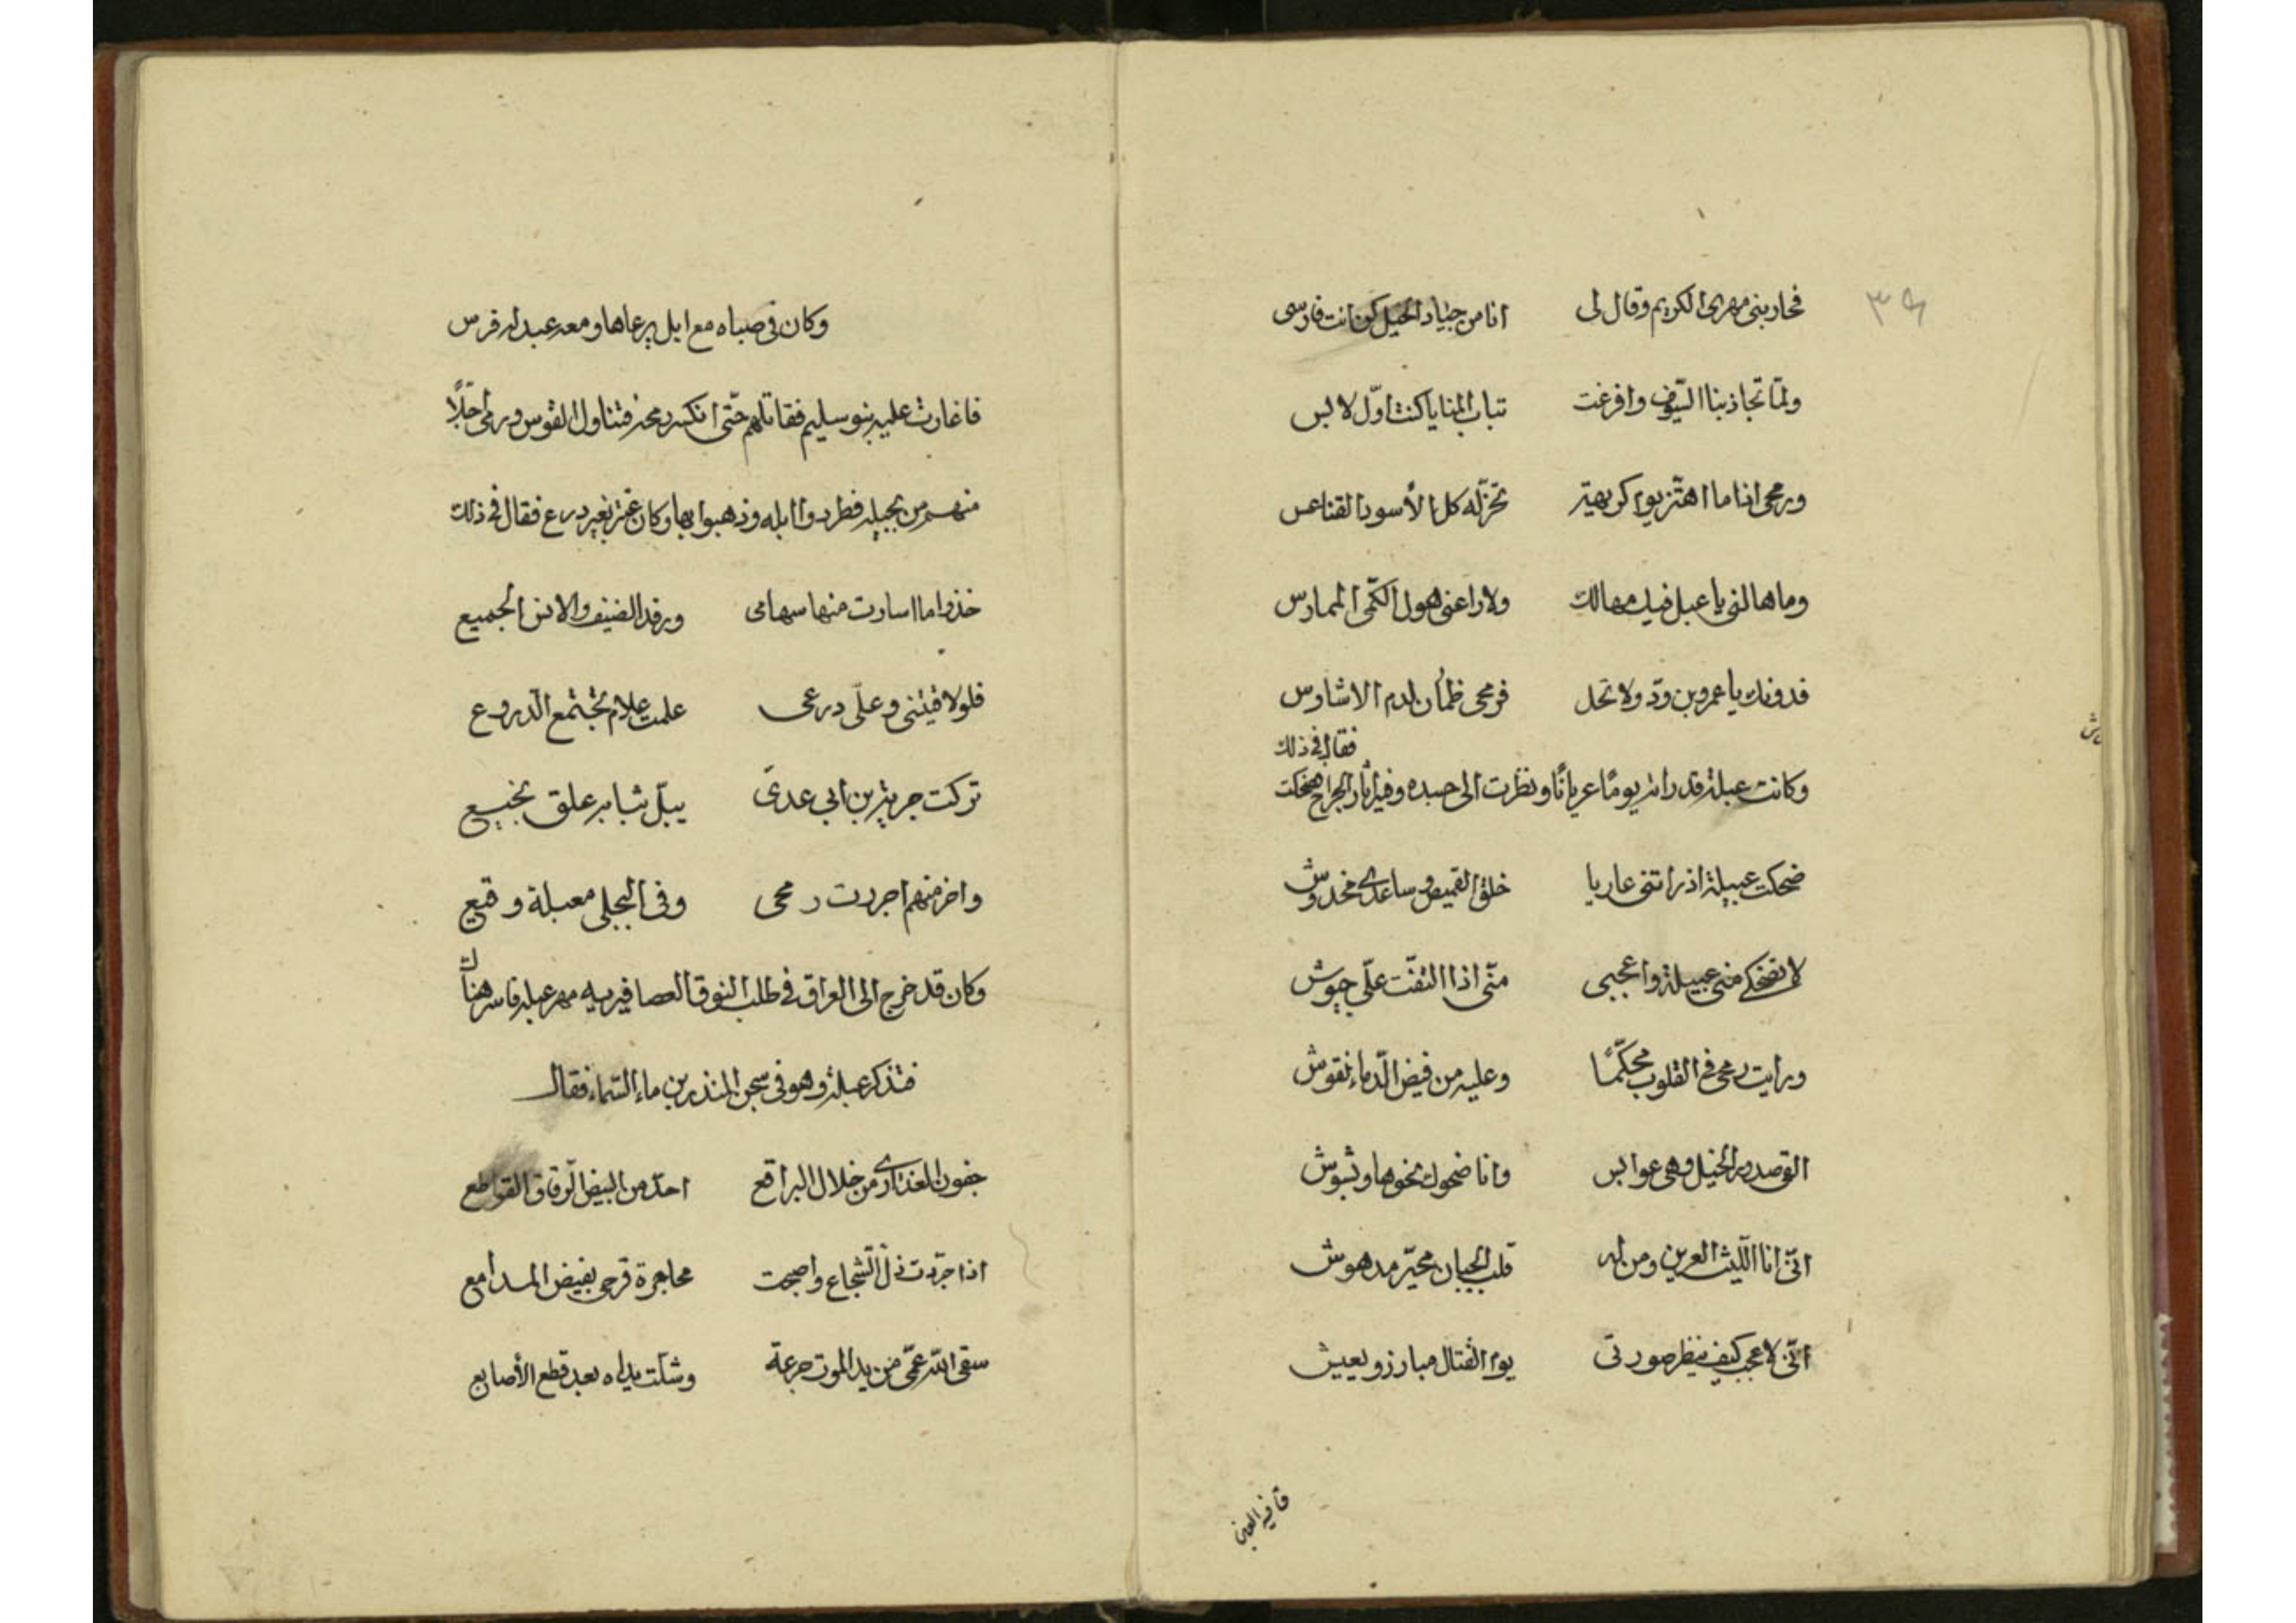 ٣٩
فجاوبنی مهری الکریم وقال لی انا من جیاد الخیل کن انت فارسی
ولمّا تجاذبنا السّیوف وافرغت ثیاب المنایا کنت اوّل لابس
ورمحی اذا ما اهتّز یوم کریهة تخرّ له کل الأسود القناعس
وما هالنی یا عبل فیك مهالك ولا راعنی هول الکمّی الممارس
فدونك یا عمرو بن ودّ ولا تحل فرمحی ظمأن لدم الاشاوس
فقال فی ذلك
وکانت عبلة قد راته یومًا عریانًا ونظرت الی جسده وفیه اثار الجراح فضحکت
ضحکت عبیلة اذ راتنی عاریا خلق القمیص وساعدی مخدوش
لا تضحکی منی عبیلة واعجبی منّی اذا التفّت علّی جیوش
ورایت رمحی فی القلوب محکّمًا وعلیه من فیض الّدماء نقوش
القی صدور الخیل وهی عوابس وانا ضحوك نحوها وبشوش
انّی انا اللّیث العرین ومن له قلب الجبان محیّر مدهوش
انّی لاعجب کیف ینظر صورتی یوم القتال مبارز ویعیش
قافیه العین
وکان فی صباه مع ابل یرعاها ومعه عبد له فرس
فاغارت علیه بنو سلیم فقاتلهم حتّی انکسر رمحه فتناول القوس ورمی رجلًا
منهم من بجیله فطردوا ابله وذهبوا بها وکان عنتر بغیر درع فقال فی ذلك
خذوا ما اسارت منها سهامی ورفد الضیف والانس الجمیع
فلو لاقیتنی وعلّی درعی علمت علام تجتمع الّدروع
ترکت جریة بن ابی عدیّ یبلّ ثیابه علق نجیع
واخر منهم اجررت رمحی وفی البجلی معبلة وقیع
وکان قد خرج الی العراق فی طلب النوق العصافیریه مهر عبله فاسر هناك
فتذکر عبلة وهو فی سجن المنذر بن ماء السّماء فقال
جفون العذاری من خلال البراقع احدّ من البیض الّرقاق القواطع
اذا جرّدت ذلّ الّشجاع واصبحت محاجرة قرحی بفیض المدامع
سقی الله عمّی من ید الموت جرعة وشلّت یداه بعد قطع الأصابع